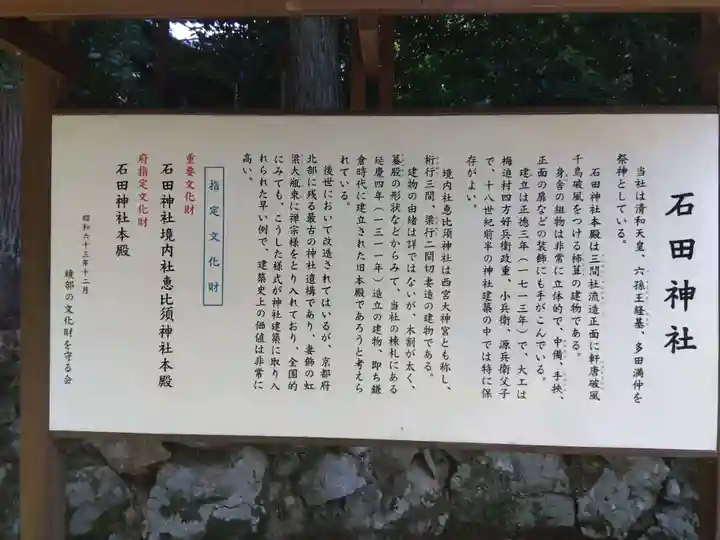 石田神社
当社は清和天皇、六孫王経基、多田満仲を
祭神としている。
石田神社本殿は三間社流造正面に軒唐破風
千鳥破風をつける杮葺の建物である。
身舎の組物は非常に立体的で、中備、手挟、
正面の扉などの装飾にも手がこんでいる。
建立は正徳三年(一七一三年)で、大工は
梅迫村四方好兵衛政重、小兵衛、源兵衛父子
で、十八世紀前半の神社建築の中では特に保
存がよい。
境内社恵比須神社は西宮大神宮とも称し、
桁行三間、梁行二間切妻造の建物である。
建物の由緒は詳ではないが、木割が太く、
蟇股の形状などからみて、当社の棟札にある
延慶四年(一三一一年)造立の建物、即ち鎌
倉時代に建立された旧本殿であろうと考えら
れている。
後世において改造されてはいるが、京都府
北部に残る最古の神社遺構であり、妻飾の虹
梁大瓶束に禅宗様をとり入れており、全国的
にみても、こうした様式が神社建築に取り入
れられた早い例で、建築史上の価値は非常に
高い。
指定文化財
重要文化財
石田神社境内社恵比須神社本殿
府指定文化財
石田神社本殿
昭和六十三年十二月
綾部の文化財を守る会